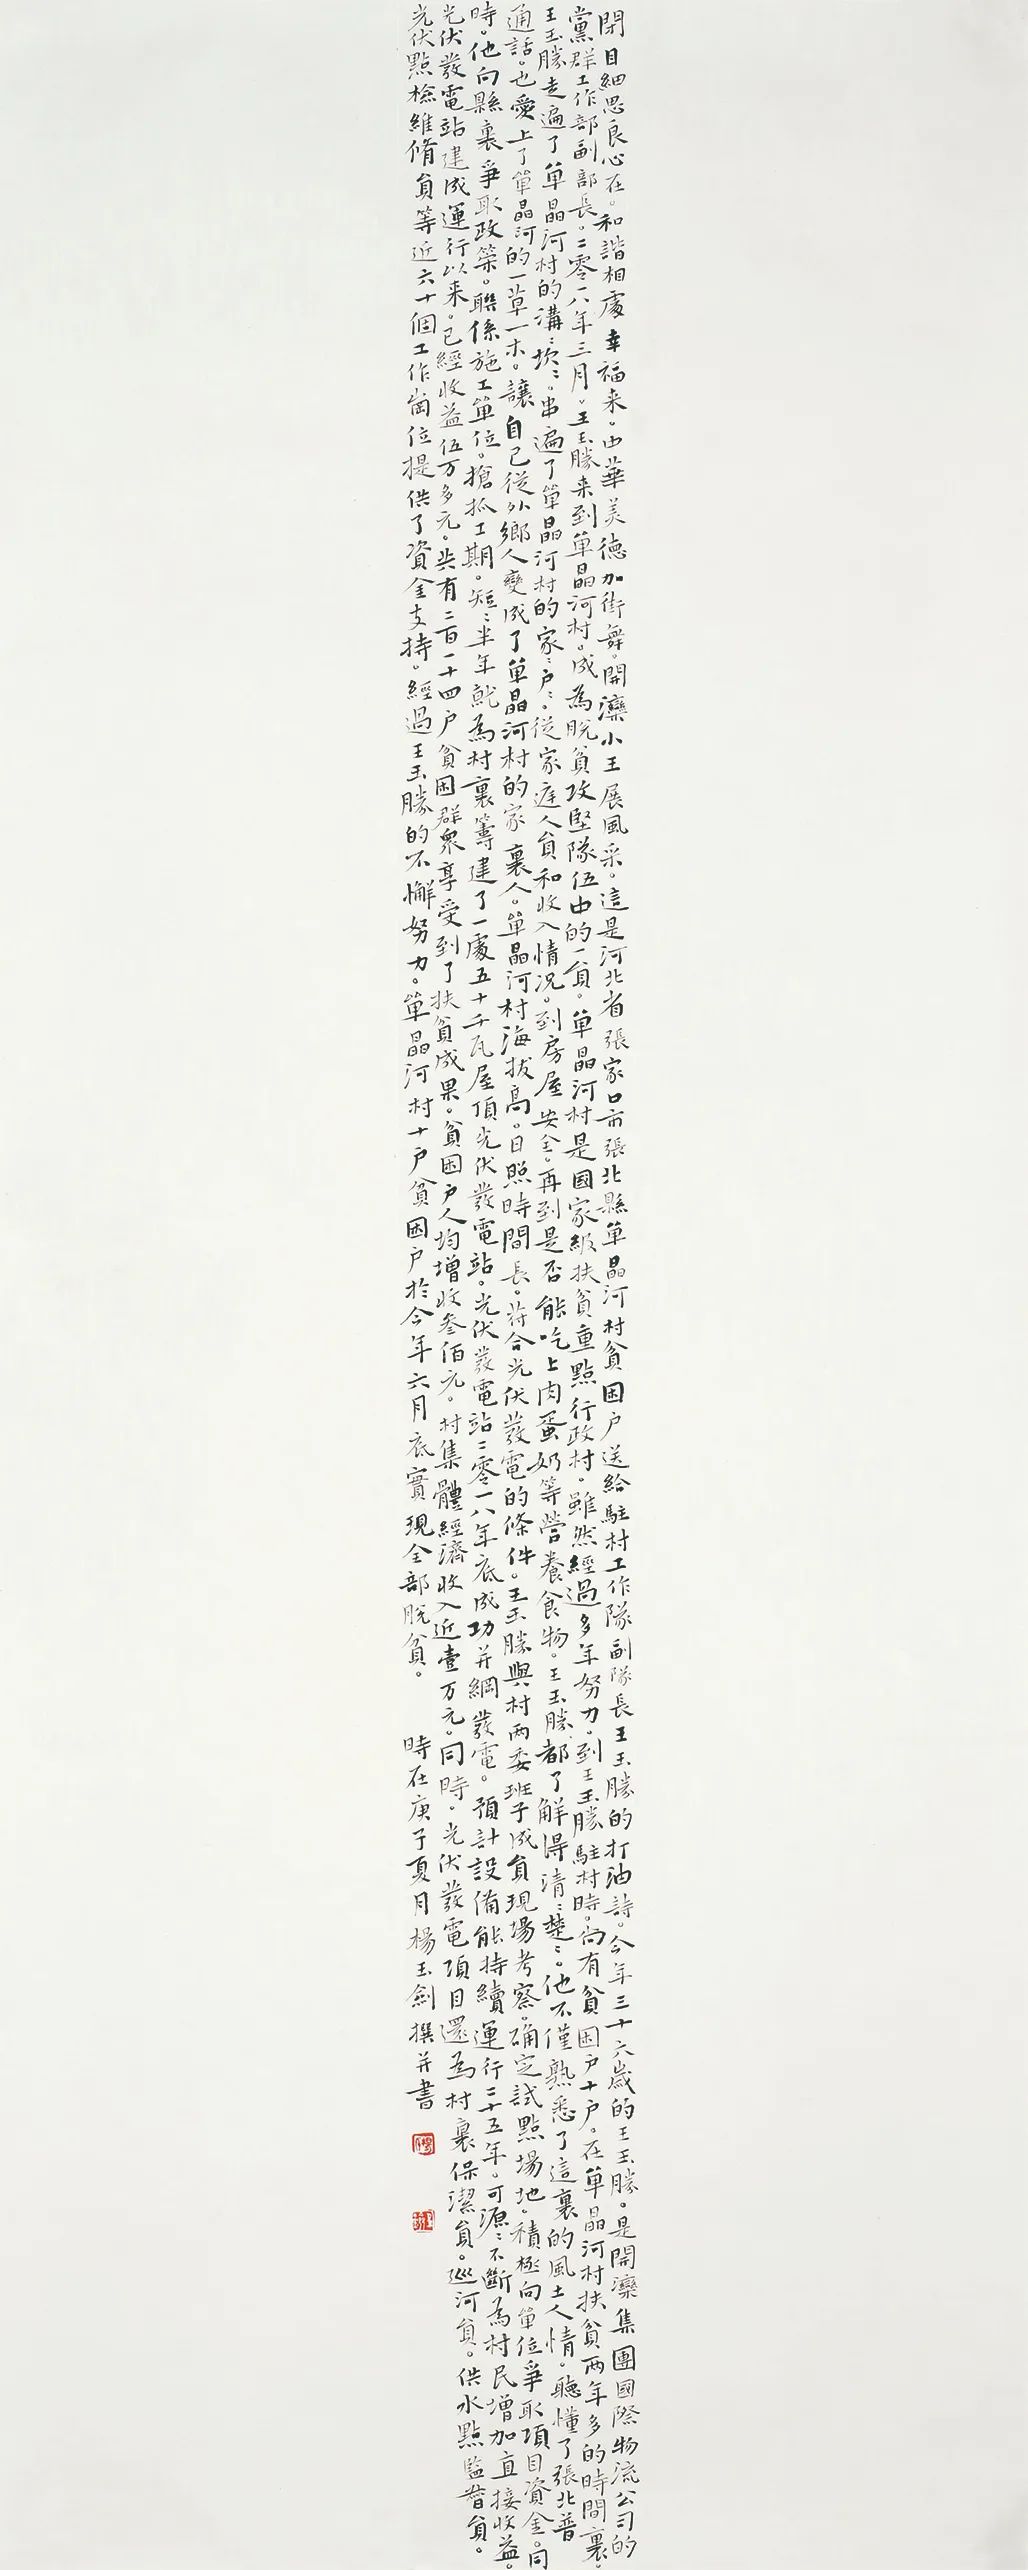 閉目細思良心在。和諧相處幸福来。中華美德加街舞。開灤小王展風采。這是河北省張家口市張北縣單晶河村貧困户送給駐村工作隊副隊長王玉勝的打油詩。今年三十六歲的王玉勝。是開灤集團國際物流公司的
黨群工作部副部長。二零一八年三月。王玉勝来到單晶河村。成為脱貧攻堅隊伍中的一員。單晶河村是國家級扶貧重點行政村。雖然經過多年努力。到王玉勝駐村時。尚有貧困户十户。在單晶河村扶貧兩年多的時間裏。
王玉勝走遍了單晶河村的溝〻坎〻。串遍了單晶河村的家〻户〻。從家庭人員和收入情况。到房屋安全。再到是否能吃上肉蛋奶等營養食物。王玉勝都了解得清〻楚〻。他不僅熟悉了這裏的風土人情。聽懂了張北普
通話。也愛上了單晶河的一草一木。讓自己從外鄉人變成了單晶河村的家裏人。單晶河村海拔高。日照時間長。符合光伏發電的條件。王玉勝與村兩委班子成員現場考察。确定試點場地。積極向單位爭取項目資金。同
時。他向縣裏爭取政策。聯係施工單位。搶抓工期。短〻半年就為村裏籌建了一處五十千瓦屋頂光伏發電站。光伏發電站二零一八年底成功并網發電。預計設備能持續運行二十五年。可源〻不斷為村民增加直接收益。
光伏發電站建成運行以来。已經收益伍万多元。共有二百一十四户貧困群衆享受到了扶貧成果。貧困户人均增收叁佰元。村集體經濟收入近壹万元。同時。光伏發電項目還為村裏保潔員。巡河員。供水點監督員。
光伏點檢維脩員等近六十個工作崗位提供了資金支持。經過王玉勝的不懈努力。單晶河村十户貧困户於今年六月底實現全部脱貧。 時在庚子夏月楊玉劍撰并書